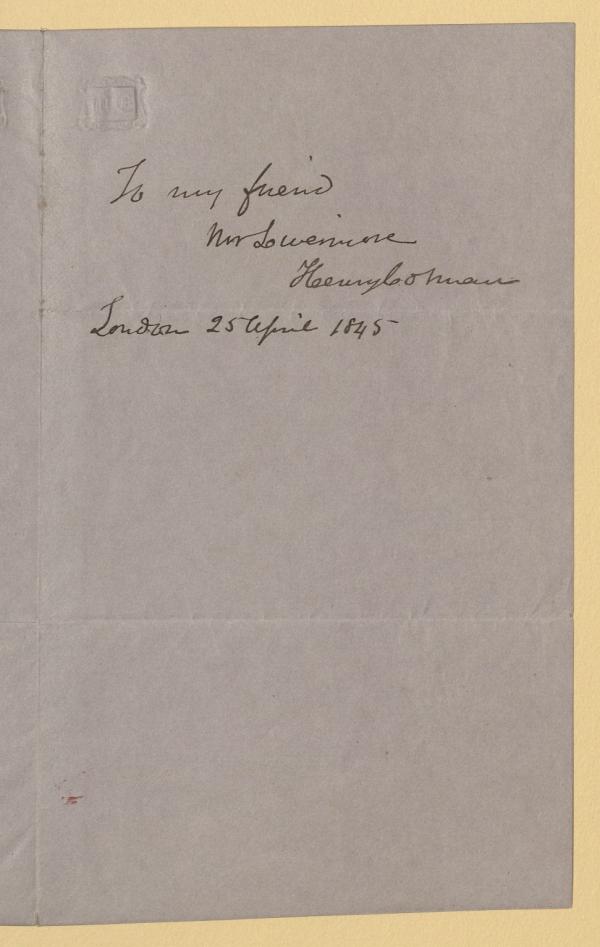 To my friend
Mr Lowenmore
Henry Colman
London 25 April 1845